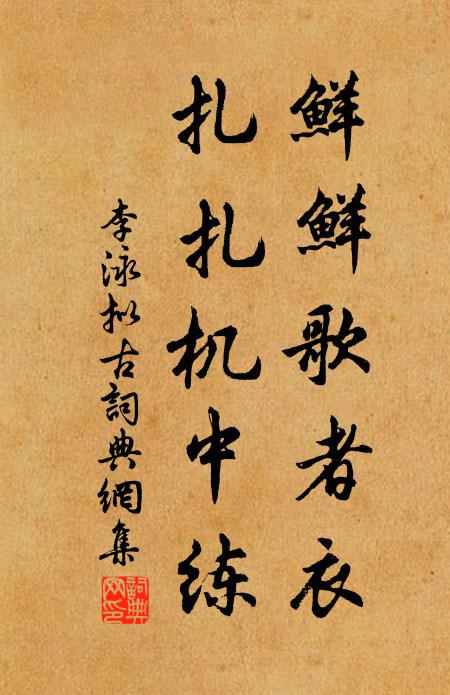 鮮鮮歌者衣
扎扎机中练
李泳拟古詞典網集
詞典网印